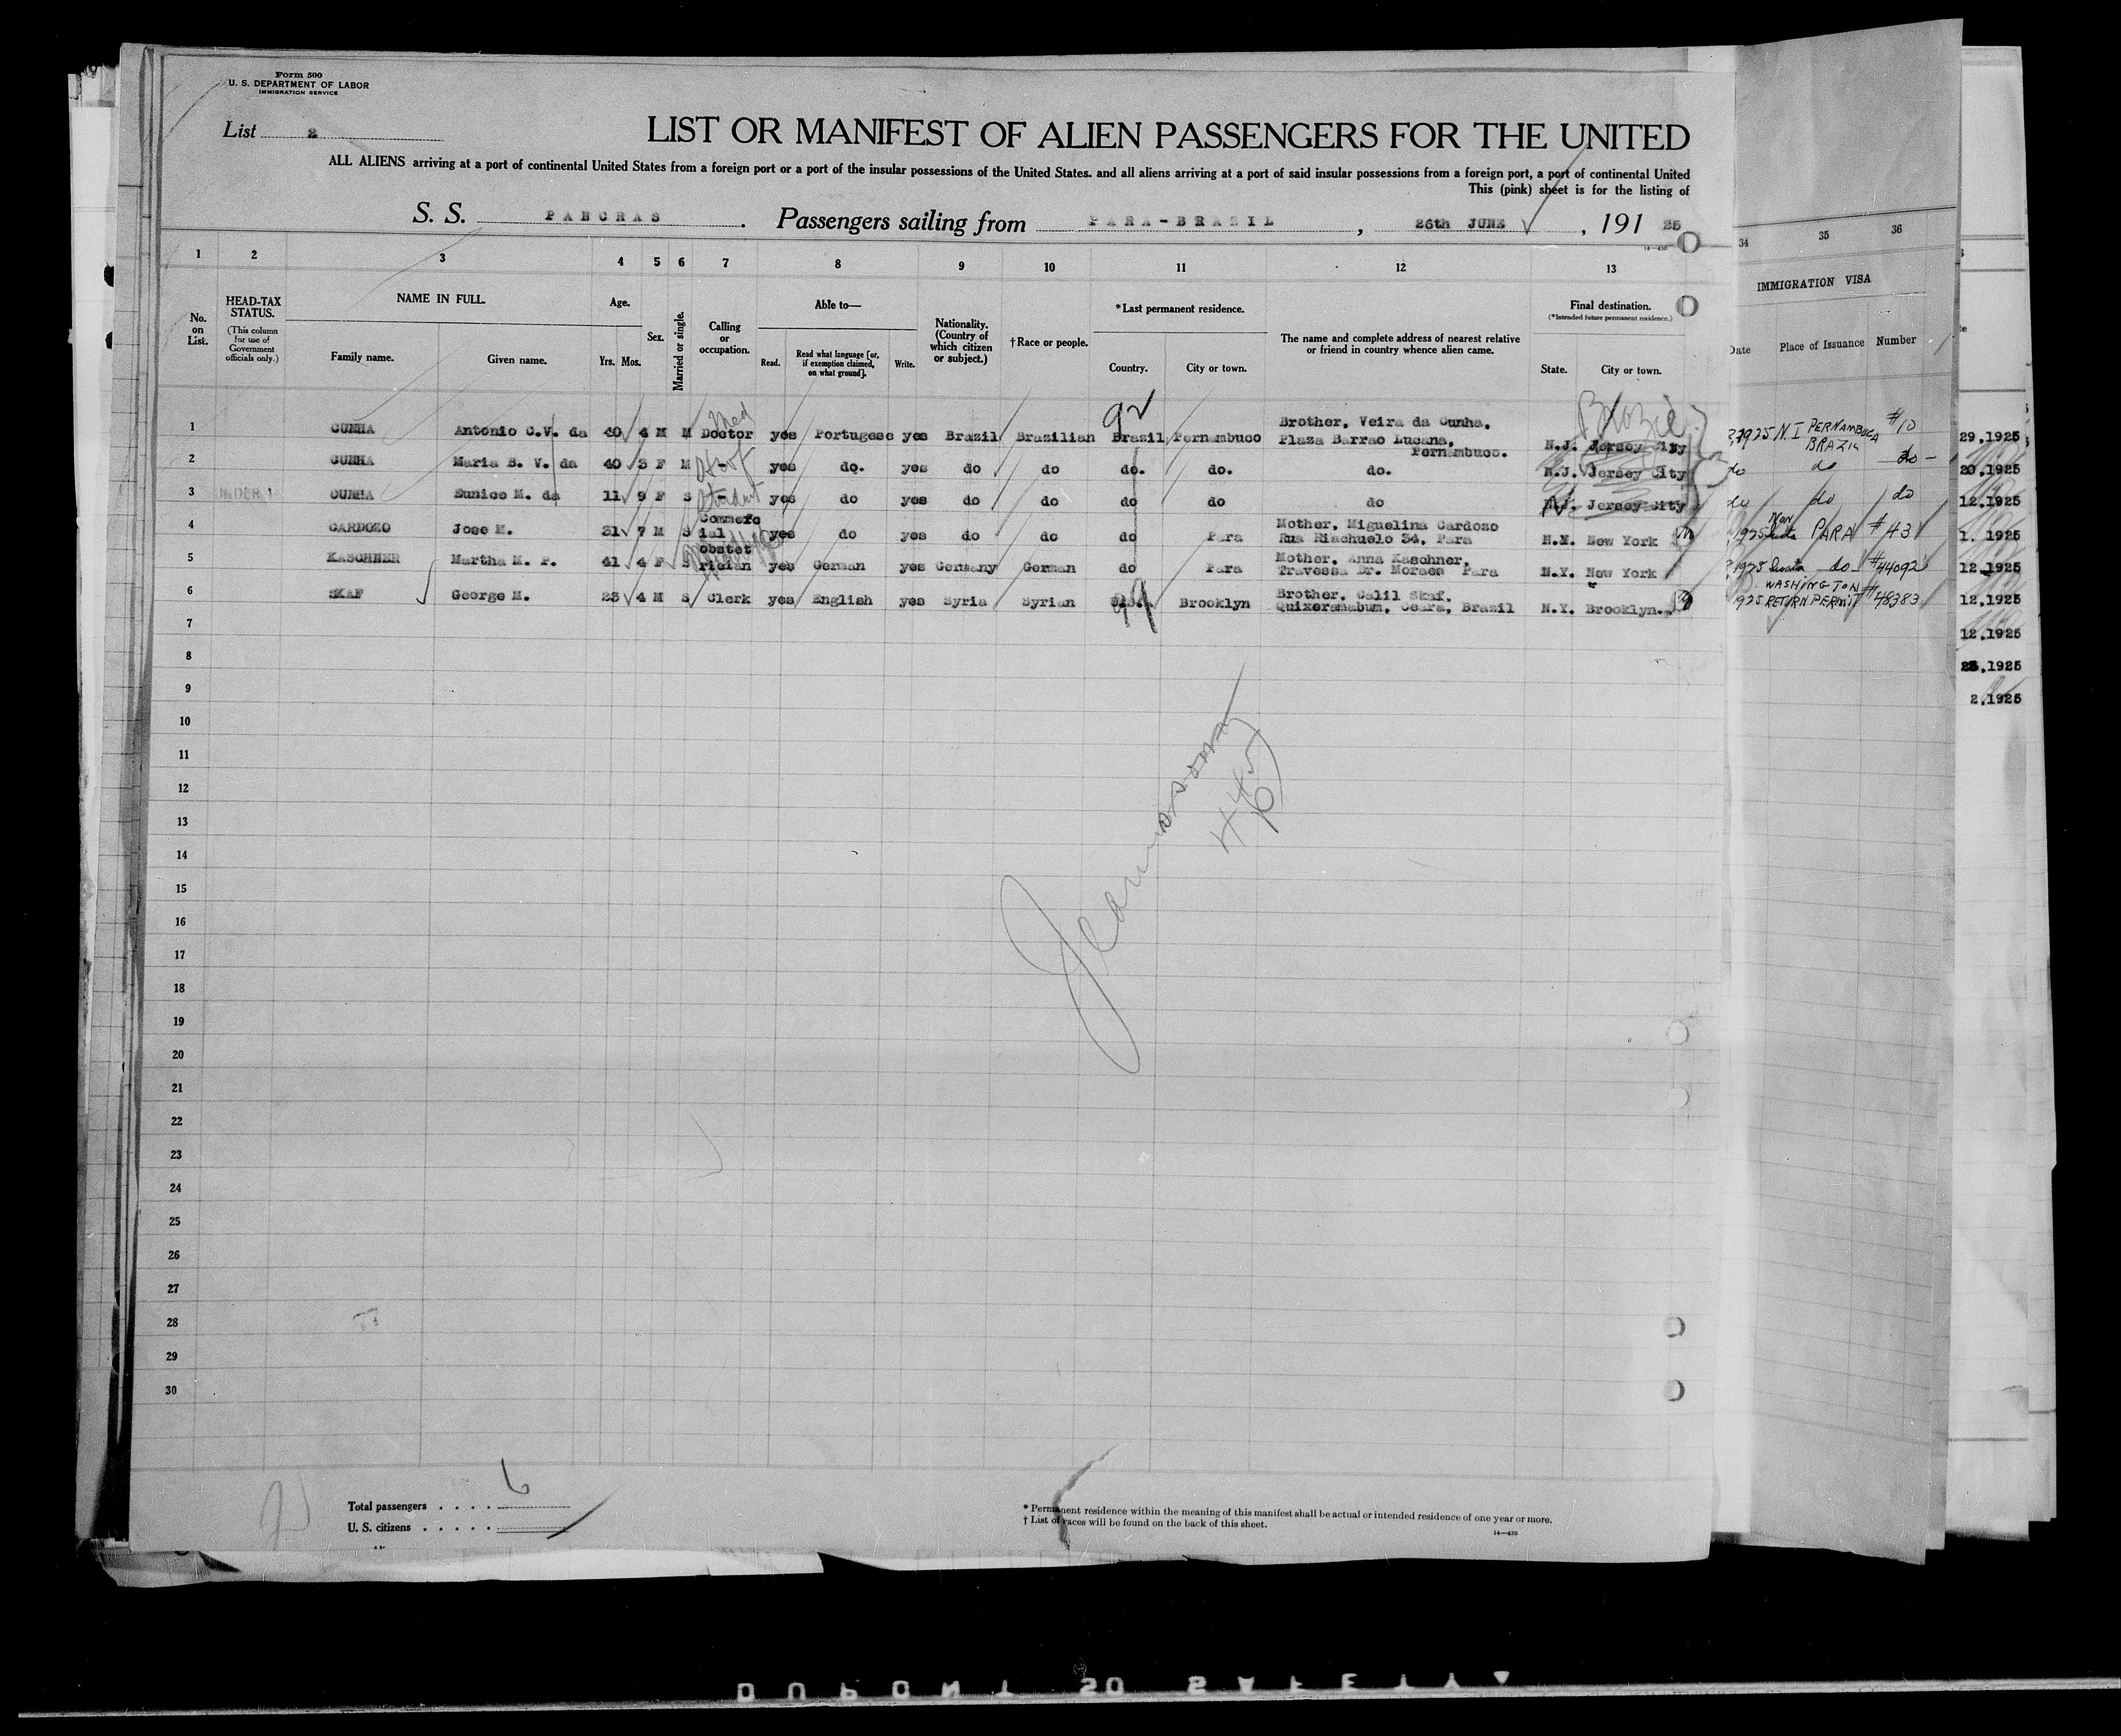 Form 500
U. S. DEPARTMENT OF LABOR
IMMIGRATION SERVICE
List 2
LIST OR MANIFEST OF ALIEN PASSENGERS FOR THE UNITED
ALL ALIENS arriving at a port of continental United States from a foreign port or a port of the insular possessions of the United States. and all aliens arriving at a port of said insular possessions from a foreign port, a port of continental United
This (pink) sheet is for the listing of
S. S. PANCRAS. Passengers sailing from PARA-BRAZIL, 26th JUNE, 191 25
1 2 3 4 5 6 7 8 9 10 11 12 13 34 35 36
No. on List.
HEAD-TAX STATUS.
(This column for use of Government officials only.)
NAME IN FULL.
Family name. Given name.
Age.
Yrs. Mos.
Sex.
Married or single.
Calling or occupation.
Able to—
Read. Read what language [or, if exemption claimed, on what ground]. Write.
Nationality. (Country of which citizen or subject.)
†Race or people.
*Last permanent residence.
Country. City or town.
The name and complete address of nearest relative or friend in country whence alien came.
Final destination.
(*Intended future permanent residence.)
State. City or town.
IMMIGRATION VISA
Date Place of Issuance Number
1 CUNHA Antonio C.V. da 40 4 M M Med Doctor yes Portugese yes Brazil Brazilian Brazil Pernambuco Brother, Veira da Cunha, Plaza Barrao Lucena, Pernambuco. N.J. Jersey City 1925 N. I PERNAMBUCA BRAZIL #10
2 CUNHA Maria B. V. da 40 3 F M - yes do. yes do do do. do. do. N.J. Jersey City do do do -
3 UNDER 16 CUNHA Eunice M. da 11 9 F S Student yes do yes do do do do do N.J. Jersey City do do do
4 CARDOZO Jose M. 31 7 M S Commercial yes do yes do do do Para Mother, Miguelina Cardozo Rua Riachuelo 34, Para N.Y. New York 1925 Non Quota PARA #43
5 KASCHNER Martha M. P. 41 4 F S obstetrician yes German yes Germany German do Para Mother, Anna Kaschner, Travessa Dr. Moraes Para N.Y. New York 1925 Quota do #44092
6 SKAF George M. 23 4 M S Clerk yes English yes Syria Syrian U.S. Brooklyn Brother, Calil Skaf, Quixeramabum, Ceara, Brazil N.Y. Brooklyn. 1925 WASHINGTON RETURN PERMIT #48383
7
8
9
10
11
12
13
14
15
16
17
18
19
20
21
22
23
24
25
26
27
28
29
30
29.1925
20.1925
12.1925
1. 1925
12.1925
12.1925
12.1925
1925
2.1925
Total passengers . . . . . 6
U. S. citizens . . . . .
* Permanent residence within the meaning of this manifest shall be actual or intended residence of one year or more.
† List of races will be found on the back of this sheet.
14—430
DUPONT SAFETY